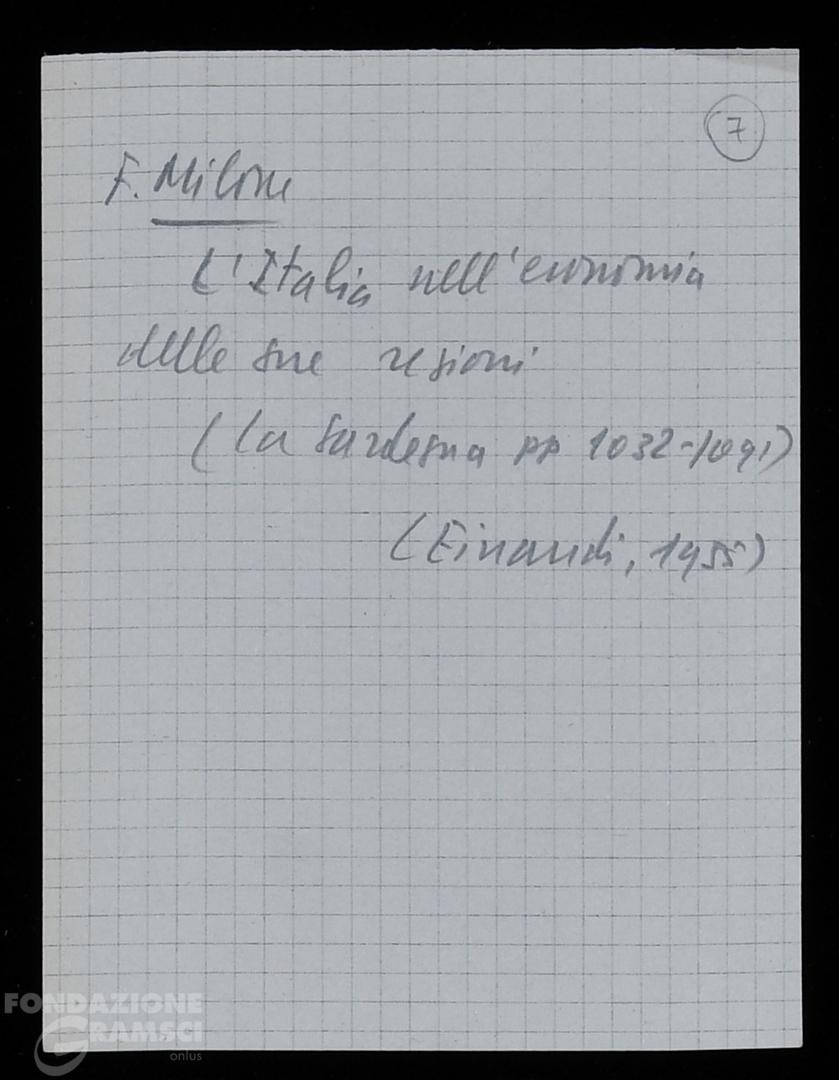 7
F. Milone
L'Italia nell'economia
delle sue regioni
(la Sardegna pp 1032-1091)
(Einaudi, 1955)
FONDAZIONE
GRAMSCI
onlus